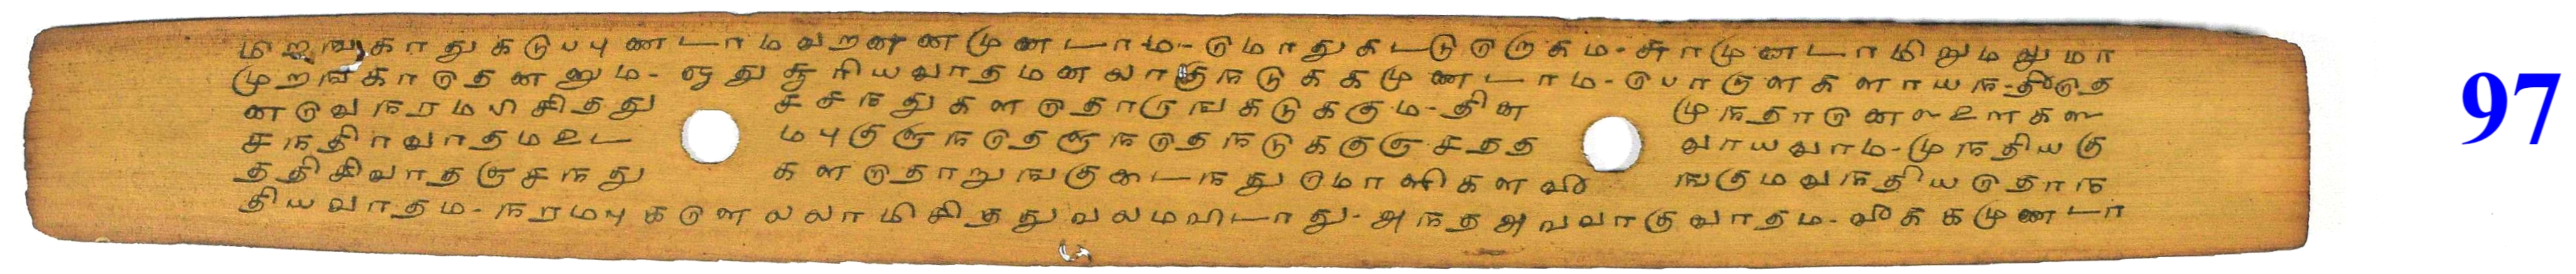 மிறஙகாதுகடுபபுணடாமவறணணமுணடாம-மொதுகடடுருகம-சுரமுணடாமிறுமலுமா
முறஙகாதெனனும-ஏதுசூரியவாதமனலாகுநடுககமுணடாம-பொருளகளாயந-தீதெ
னவெநரமபிசிதது சசநதுகளதொறுஙகடுககும-தின முநதாணெ
சநதிரவாதமஉட மபுகுஞநதெஞநதெநடுககுஞசதத வாயவாம-முநதியகு
ததிசிவாதஞசநது களதொறுஙகுடைநதுமொளிகளவீ ஙகுமவநதியதொந
தியவாதம-நரமபுகளெலலாமிசிததுவலமவிடாது-அநதஅவவாகுவாதம-வீககமுணடா
97